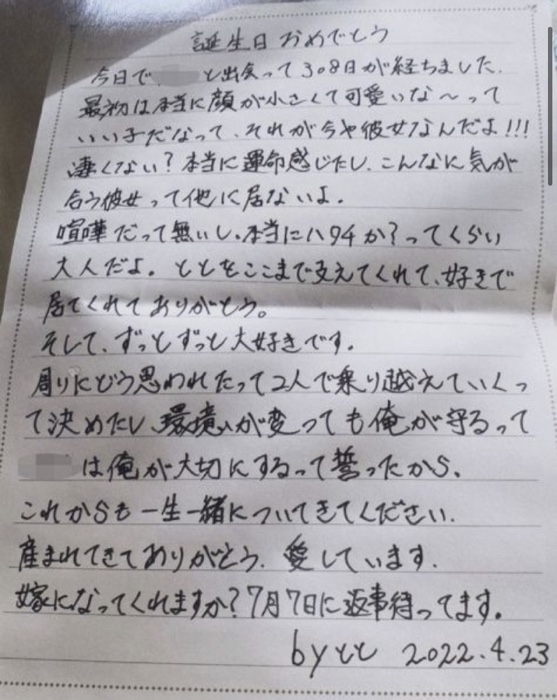 誕生日おめでとう
今日で と出会って308日が経ちました.
最初は本当に顔が小さくて可愛いな〜って
いい子だなって、それが今や彼女なんだよ!!!
凄くない?本当に運命感じたし、こんなに気が
合う彼女って他に居ないよ.
喧嘩だって無いし、本当にハタチか?ってくらい
大人だよ。ととをここまで支えてくれて、好きで
居てくれてありがとう。
そして、ずっとずっと大好きです.
周りにどう思われたって2人で乗り越えていくっ
て決めたし、環境が変っても俺が守るって
は俺が大切にするって誓ったから、
これからも一生一緒についてきてください.
産まれてきてありがとう.愛しています.
嫁になってくれますか?7月7日に返事待ってます。
byとと 2022.4.23